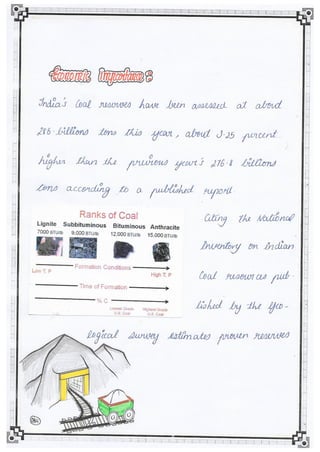 Economic Importance :
India's Coal reserves have been assessed at about
286 billions tons this year, about 3.25 percent
higher than the previous year's 276.8 billions
tons according to a published report
Citing the National
Inventory on Indian
Coal resources pub-
lished by the Geo-
logical survey estimates proven reserves
Ranks of Coal
Lignite Subbituminous Bituminous Anthracite
7000 BTU/lb 9,000 BTU/lb 12,000 BTU/lb 15,000 BTU/lb
Formation Conditions
Low T, P High T, P
Time of Formation
% C
Lowest Grade Highest Grade
U.K. Coal U.K. Coal